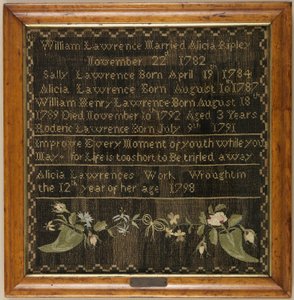 William Lawrence Married Alicia Ripley
November 22d 1782
Sally Lawrence Born April 19 1784
Alicia Lawrence Born August 16 1787
William Henry Lawrence Born August 18
1789 Died November 16 1792 Aged 3 Years
Roderic Lawrence Born July 9th 1791
Improve Every Moment of youth while you
May for Life is too short to Be trifled away
Alicia Lawrences Work Wrought in
the 12th year of her age 1798